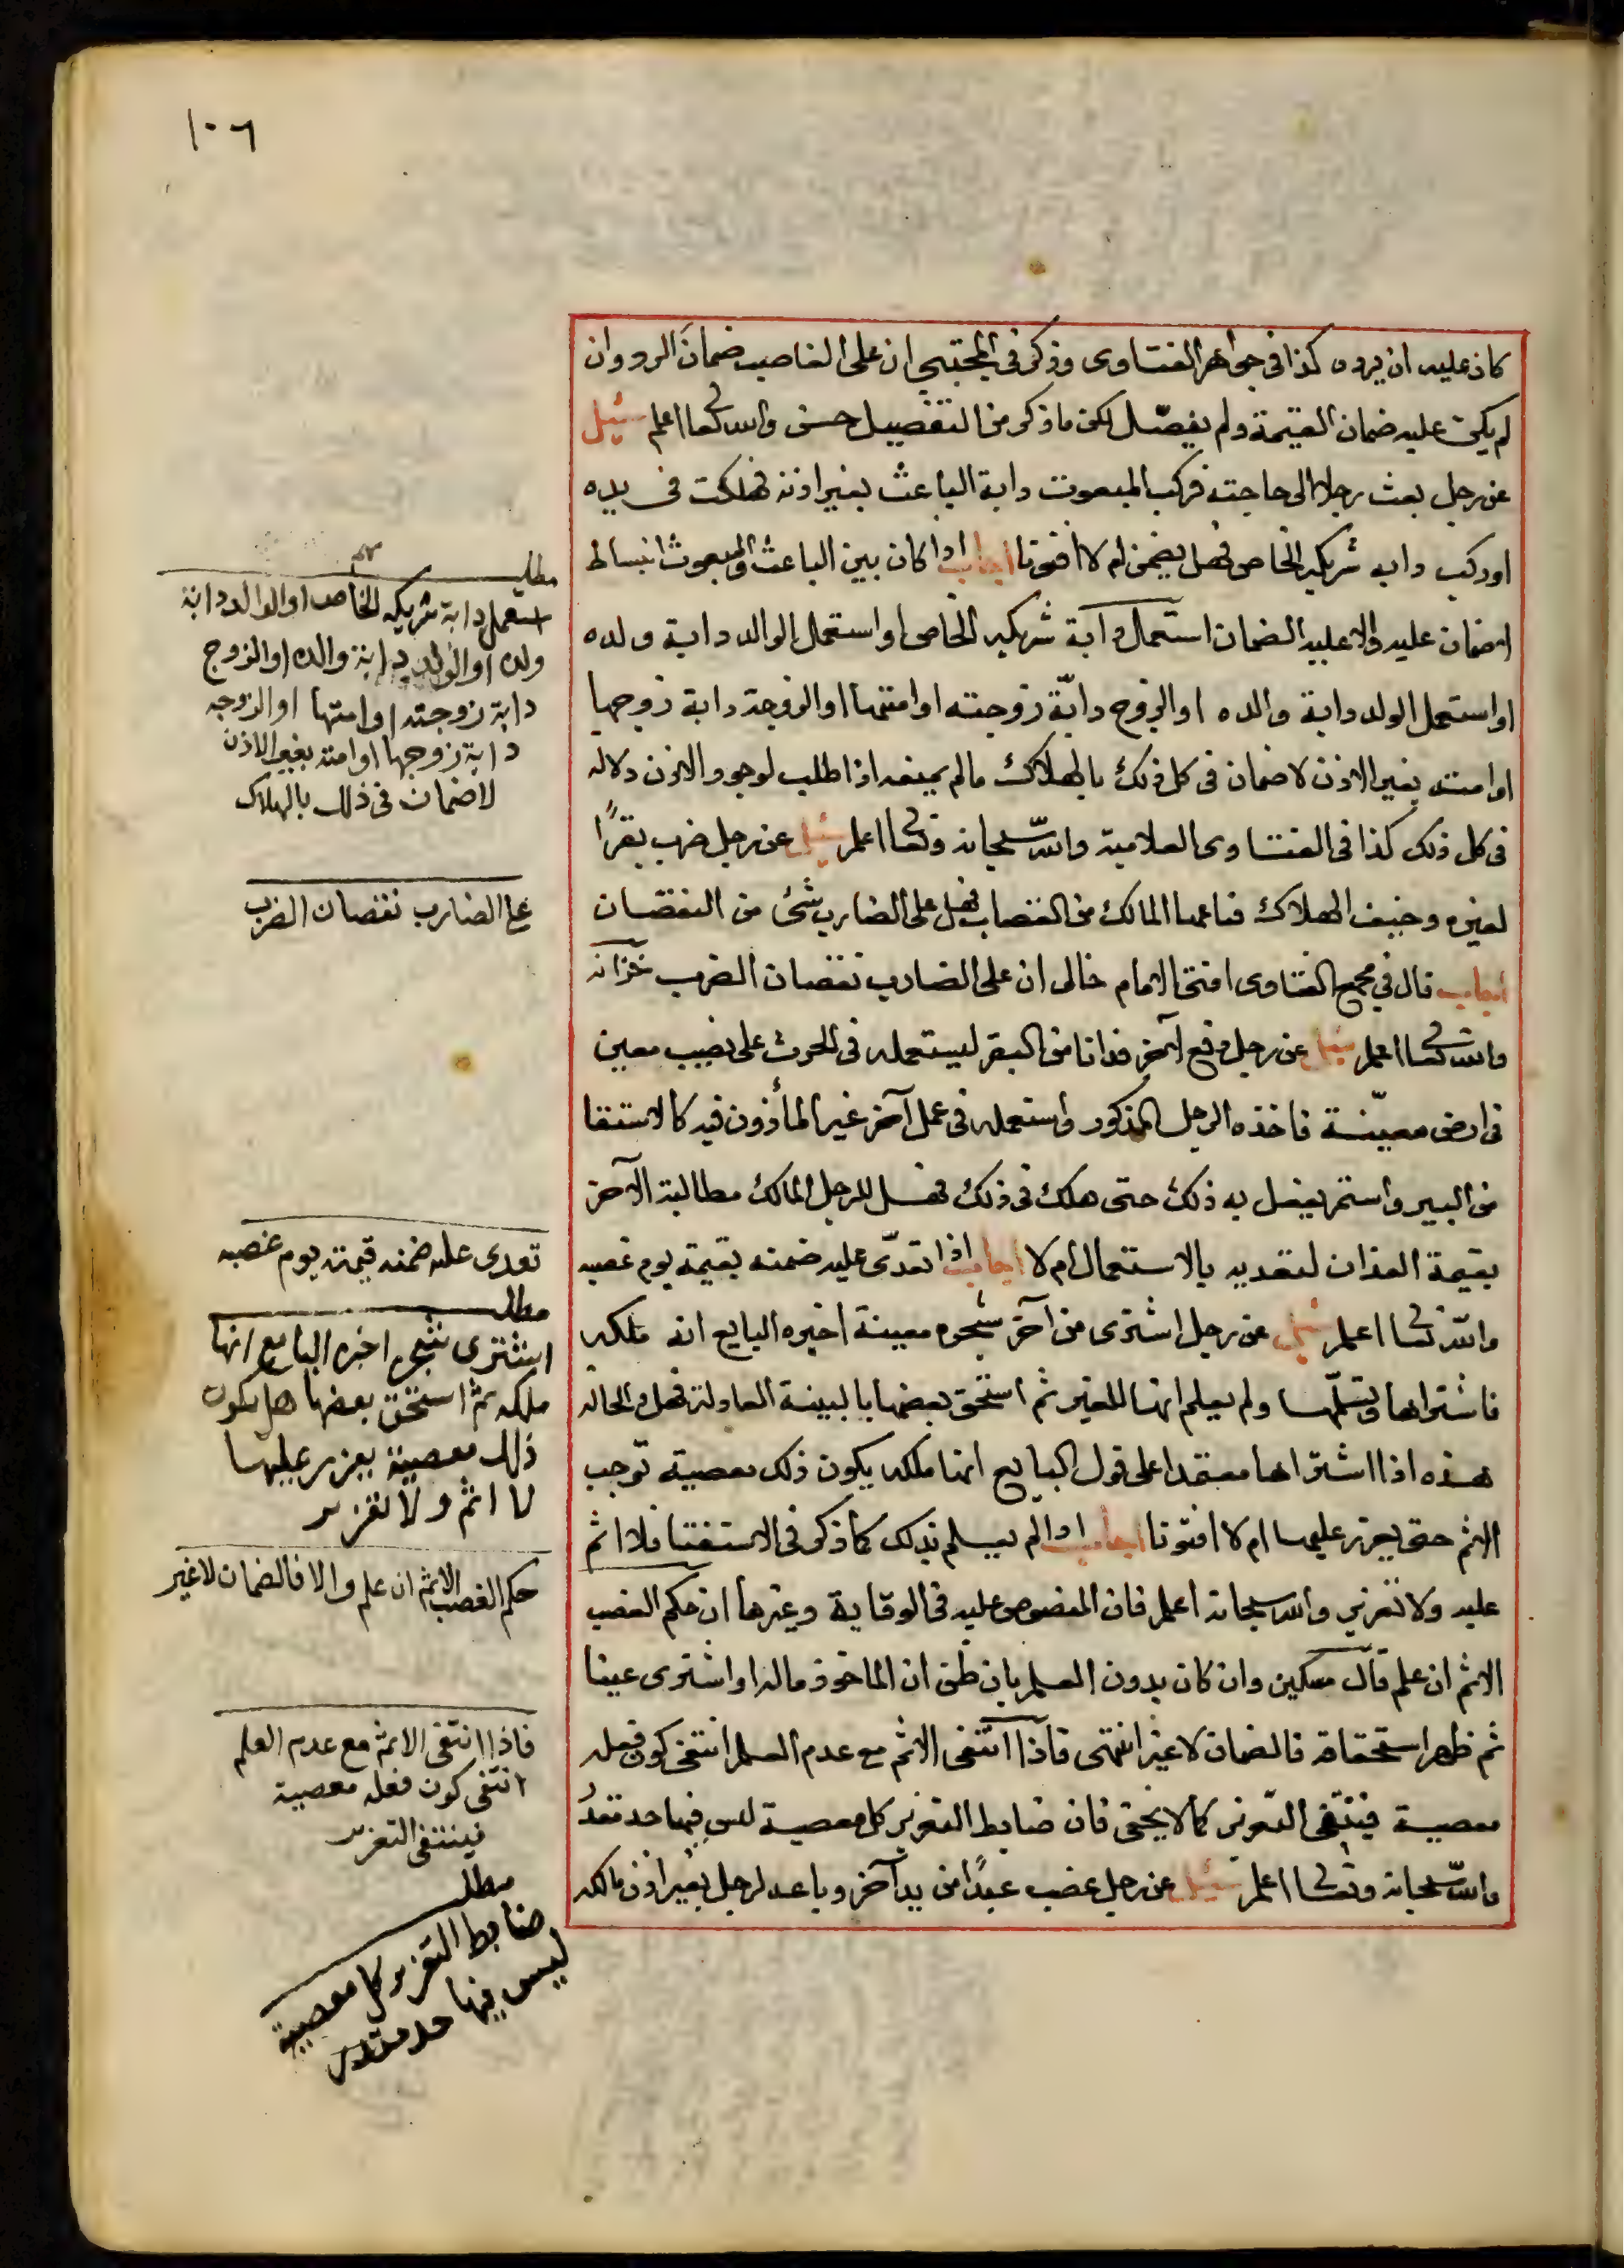 ١٠٦
كان عليه ان يرده كذا في جواهر الفتاوى وذكر في المجتبى ان على الغاصب ضمان الرد وان
لم يكن عليه ضمان القيمة ولم يفصّل لكن ما ذكر من التفصيل حسن والله تعالى اعلم سئيل
عن رجل بعث رجلا الى حاجته فركب المبعوث دابة الباعث بغير اذنه فهلكت في يده
او ركب دابه شريكه الخاص فهل يضمن ام لا افتونا اجاب اذا كان بين الباعث والمبعوث انبساط
لاضمان عليه والا عليه الضمان استعمل دابة شريكه الخاص او استعمل الوالد دابة ولده
او استعمل الولد دابة والده او الزوج دابّة زوجته او امتها او الزوجة دابة زوجها
او امته بغير الاذن لا ضمان في كل ذلك بالهلاك ما لم يمنعه اذا طلب لوجود الاذن دلاله
في كل ذلك كذا في الفتاوى العلامية والله سبحانه وتعالى اعلم سئيل عن رجل ضرب بقرًا
لغيره وخيف الهلاك فباعها المالك من القصاب فهل على الضارب شئ من النقصان
اجاب قال في مجمع الفتاوى افتى الامام خالى ان على الضارب نقصان الضرب خزانه
والله تعالى اعلم سئيل عن رجل دفع لآخر فدانا من البقر ليستعمله في الحرث على نصيب معين
في ارض معيّنة فاخذه الرجل المذكور واستعمله في عمل آخر غير المأذون فيه كالاستقا
من البير واستمر يفعل به ذلك حتى هلك في ذلك فهل للرجل المالك مطالبة الآخر
بقيمة الفدان لتعديه بالاستعمال ام لا اجاب اذا تعدّى عليه ضمنه بقيمة يوم غصبه
والله تعالى اعلم سئيل عن رجل اشترى من آخر شجره معينة اخبره البايع انه ملكه
فاشتراها وتسلّمها ولم يعلم انها للغير ثم استحق بعضها بالبينة العادلة فهل والحاله
هذه اذا اشتراها معتمدا على قول البايع انها ملكه يكون ذلك معصية توجب
الاثم حتى يعزر عليها ام لا افتونا اجاب اذا لم يعلم بذلك كما ذكر في الاستفتا فلا اثم
عليه ولا تعزير والله سبحانه اعلم فان المنصوص عليه في الوقاية وغيرها ان حكم الغصب
الاثم ان علم قال مسكين وان كان بدون العلم بان ظن ان الماخوذ ماله او اشترى عينا
ثم ظهر استحقاقه فالضمان لا غير انتهى فاذا انتفى الاثم مع عدم العلم انتفى كون فعله
معصية فينتفى التعزير كما لا يخفى فان ضابط التعزير كل معصية ليس فيها حد مقدر
والله سبحانه وتعالى اعلم سئيل عن رجل غصب عبدًا من يد آخر وباعه لرجل بغير اذن مالكه
مطلب
استعمل دابة شريكه الخاص او الوالد دابة
ولده او الولد دابة والده او الزوج
دابة زوجته او امتها او الزوجه
دابة زوجها او امته بغير الاذن
لا ضمان في ذلك بالهلاك
على الضارب نقصان الضرب
تعدى عليه ضمنه قيمته يوم غصبه
مطلب
اشترى شجره اخبره البايع انها
ملكه ثم استحق بعضها هل يكون
ذلك معصية يعزر عليها
لا اثم ولا تعزير
حكم الغصب الاثم ان علم والا فالضمان لا غير
فاذا انتفى الاثم مع عدم العلم
انتفى كون فعله معصية
فينتفى التعزير
مطلب
ضابط التعزير كل معصية
ليس فيها حد مقدر